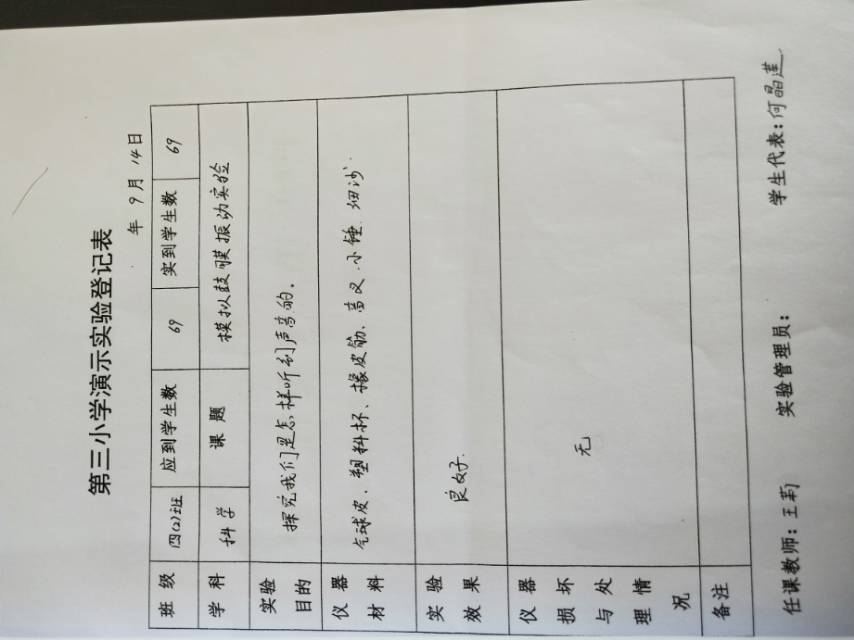 第三小学演示实验登记表
年 9月 14日
班级 四(2)班 应到学生数 69 实到学生数 69
学科 科学 课题 模拟鼓膜振动实验
实验目的 探究我们是怎样听到声音的。
仪器材料 气球皮、塑料杯、橡皮筋、音叉、小锤、细沙
实验效果 良好
仪器损坏与处理情况 无
备注
任课教师：王莉 实验管理员： 学生代表：何晶莲